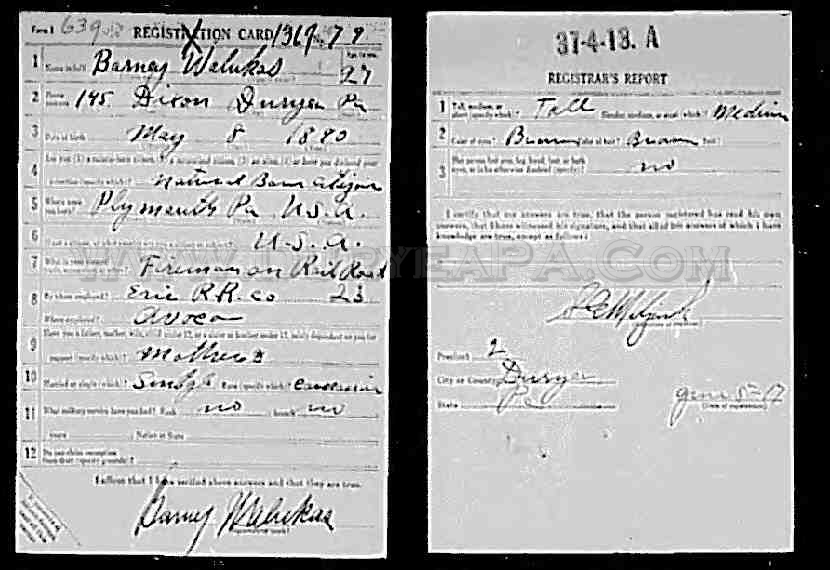 Form 1 639 REGISTRATION CARD 1369 No. 79
1 Name in full Barney Walukas Age, in yrs. 27
2 Home address 145 Dixon Duryea Pa
3 Date of birth May 8 1890
4 Are you (1) a natural-born citizen, (2) a naturalized citizen, (3) an alien, (4) or have you declared your
intention (specify which)? Natural Born Citizen
5 Where were you born? Plymouth Pa U.S.A.
6 If not a citizen, of what country are you a citizen or subject? U.S.A.
7 What is your present trade, occupation, or office? Fireman on Rail Road
8 By whom employed? Erie R.R. co 23
Where employed? Avoca
9 Have you a father, mother, wife, child under 12, or a sister or brother under 12, solely dependent on you for
support (specify which)? Mother
10 Married or single (which)? Single Race (specify which)? Caucasian
11 What military service have you had? Rank no branch no
years Nation or State
12 Do you claim exemption from draft (specify grounds)?
I affirm that I have verified above answers and that they are true.
Barney Walukas
37-4-13. A
REGISTRAR'S REPORT
1 Tall, medium, or short (specify which)? Tall Slender, medium, or stout (which)? Medium
2 Color of eyes? Brown Color of hair? Brown Bald?
3 Has person lost arm, leg, hand, foot, or both eyes, or is he otherwise disabled (specify)? no
I certify that my answers are true, that the person registered has read his own
answers, that I have witnessed his signature, and that all of his answers of which I have
knowledge are true, except as follows:
WWW.DURYEAPA.COM
(Signature of registrar)
Precinct 2
City or County Duryea
State Pa June 5-17
(Date of registration)